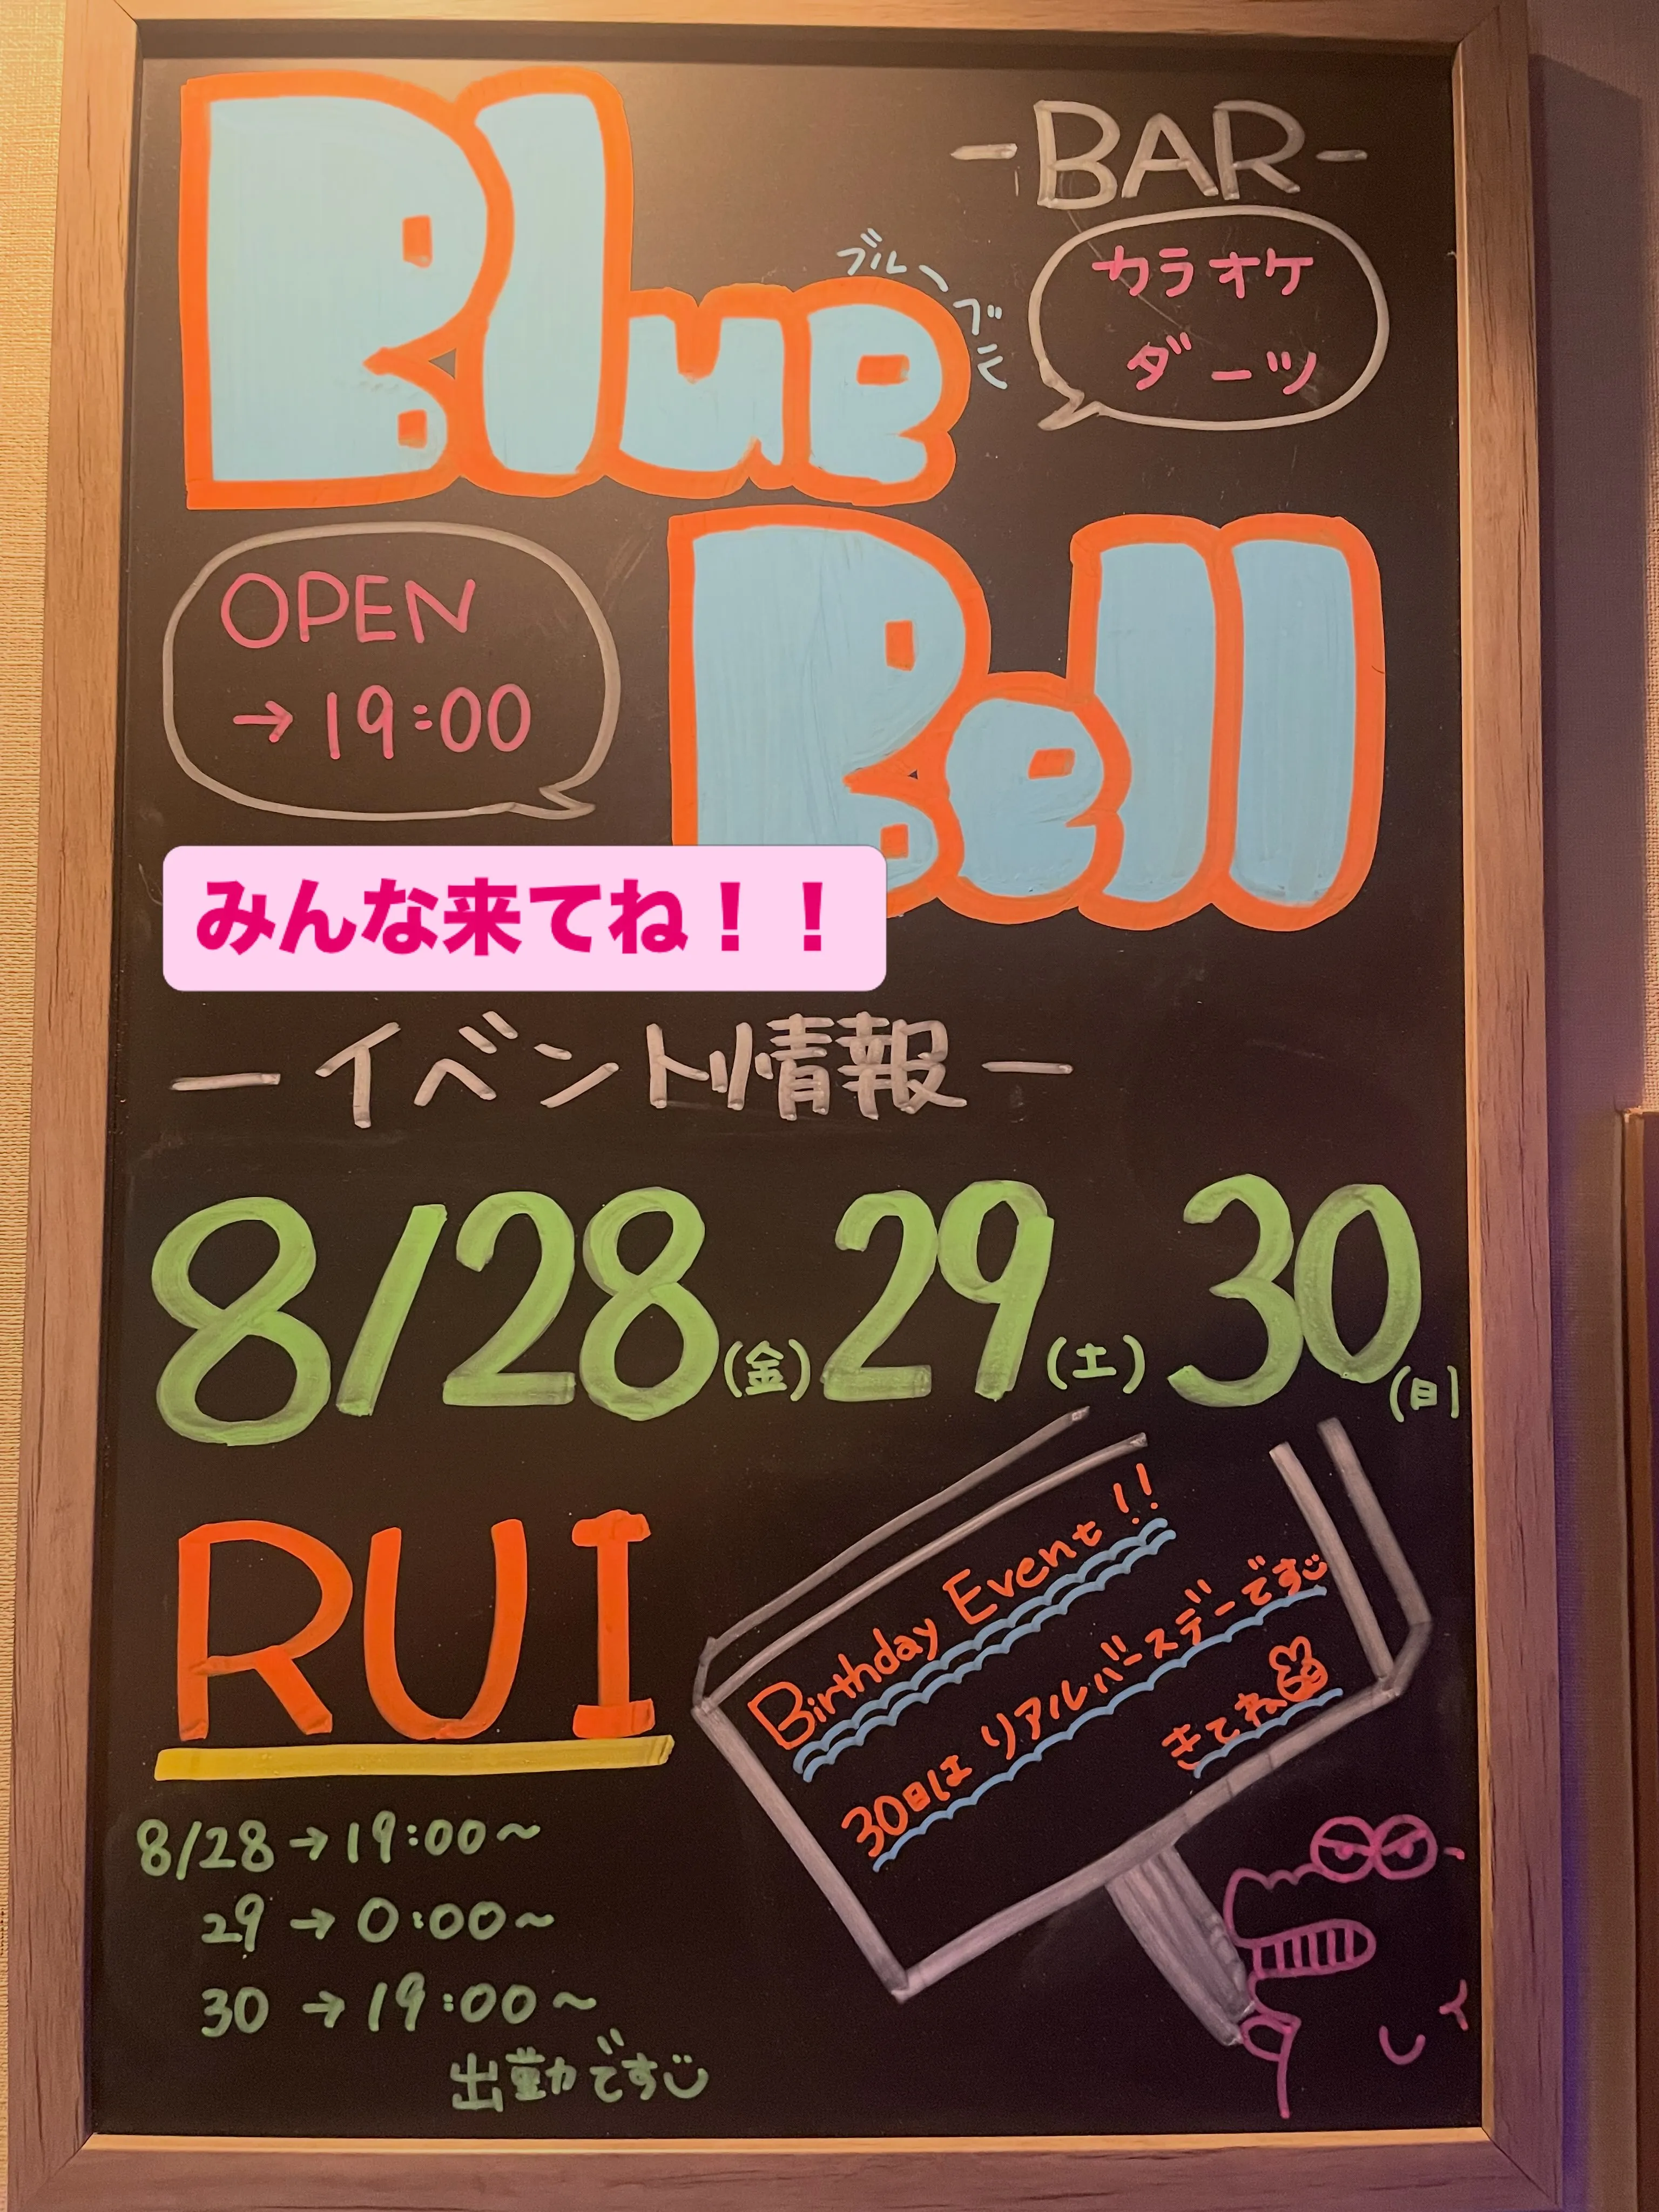 Blue
-BAR-
ブルーベル
カラオケ
ダーツ
Bell
OPEN
→19:00
みんな来てね！！
ーイベント情報ー
8/28(金) 29(土) 30(日)
RUI
Birthday Event!!
30日は リアルバースデーです
きてね
8/28→19:00〜
29→0:00〜
30→19:00〜
出勤です